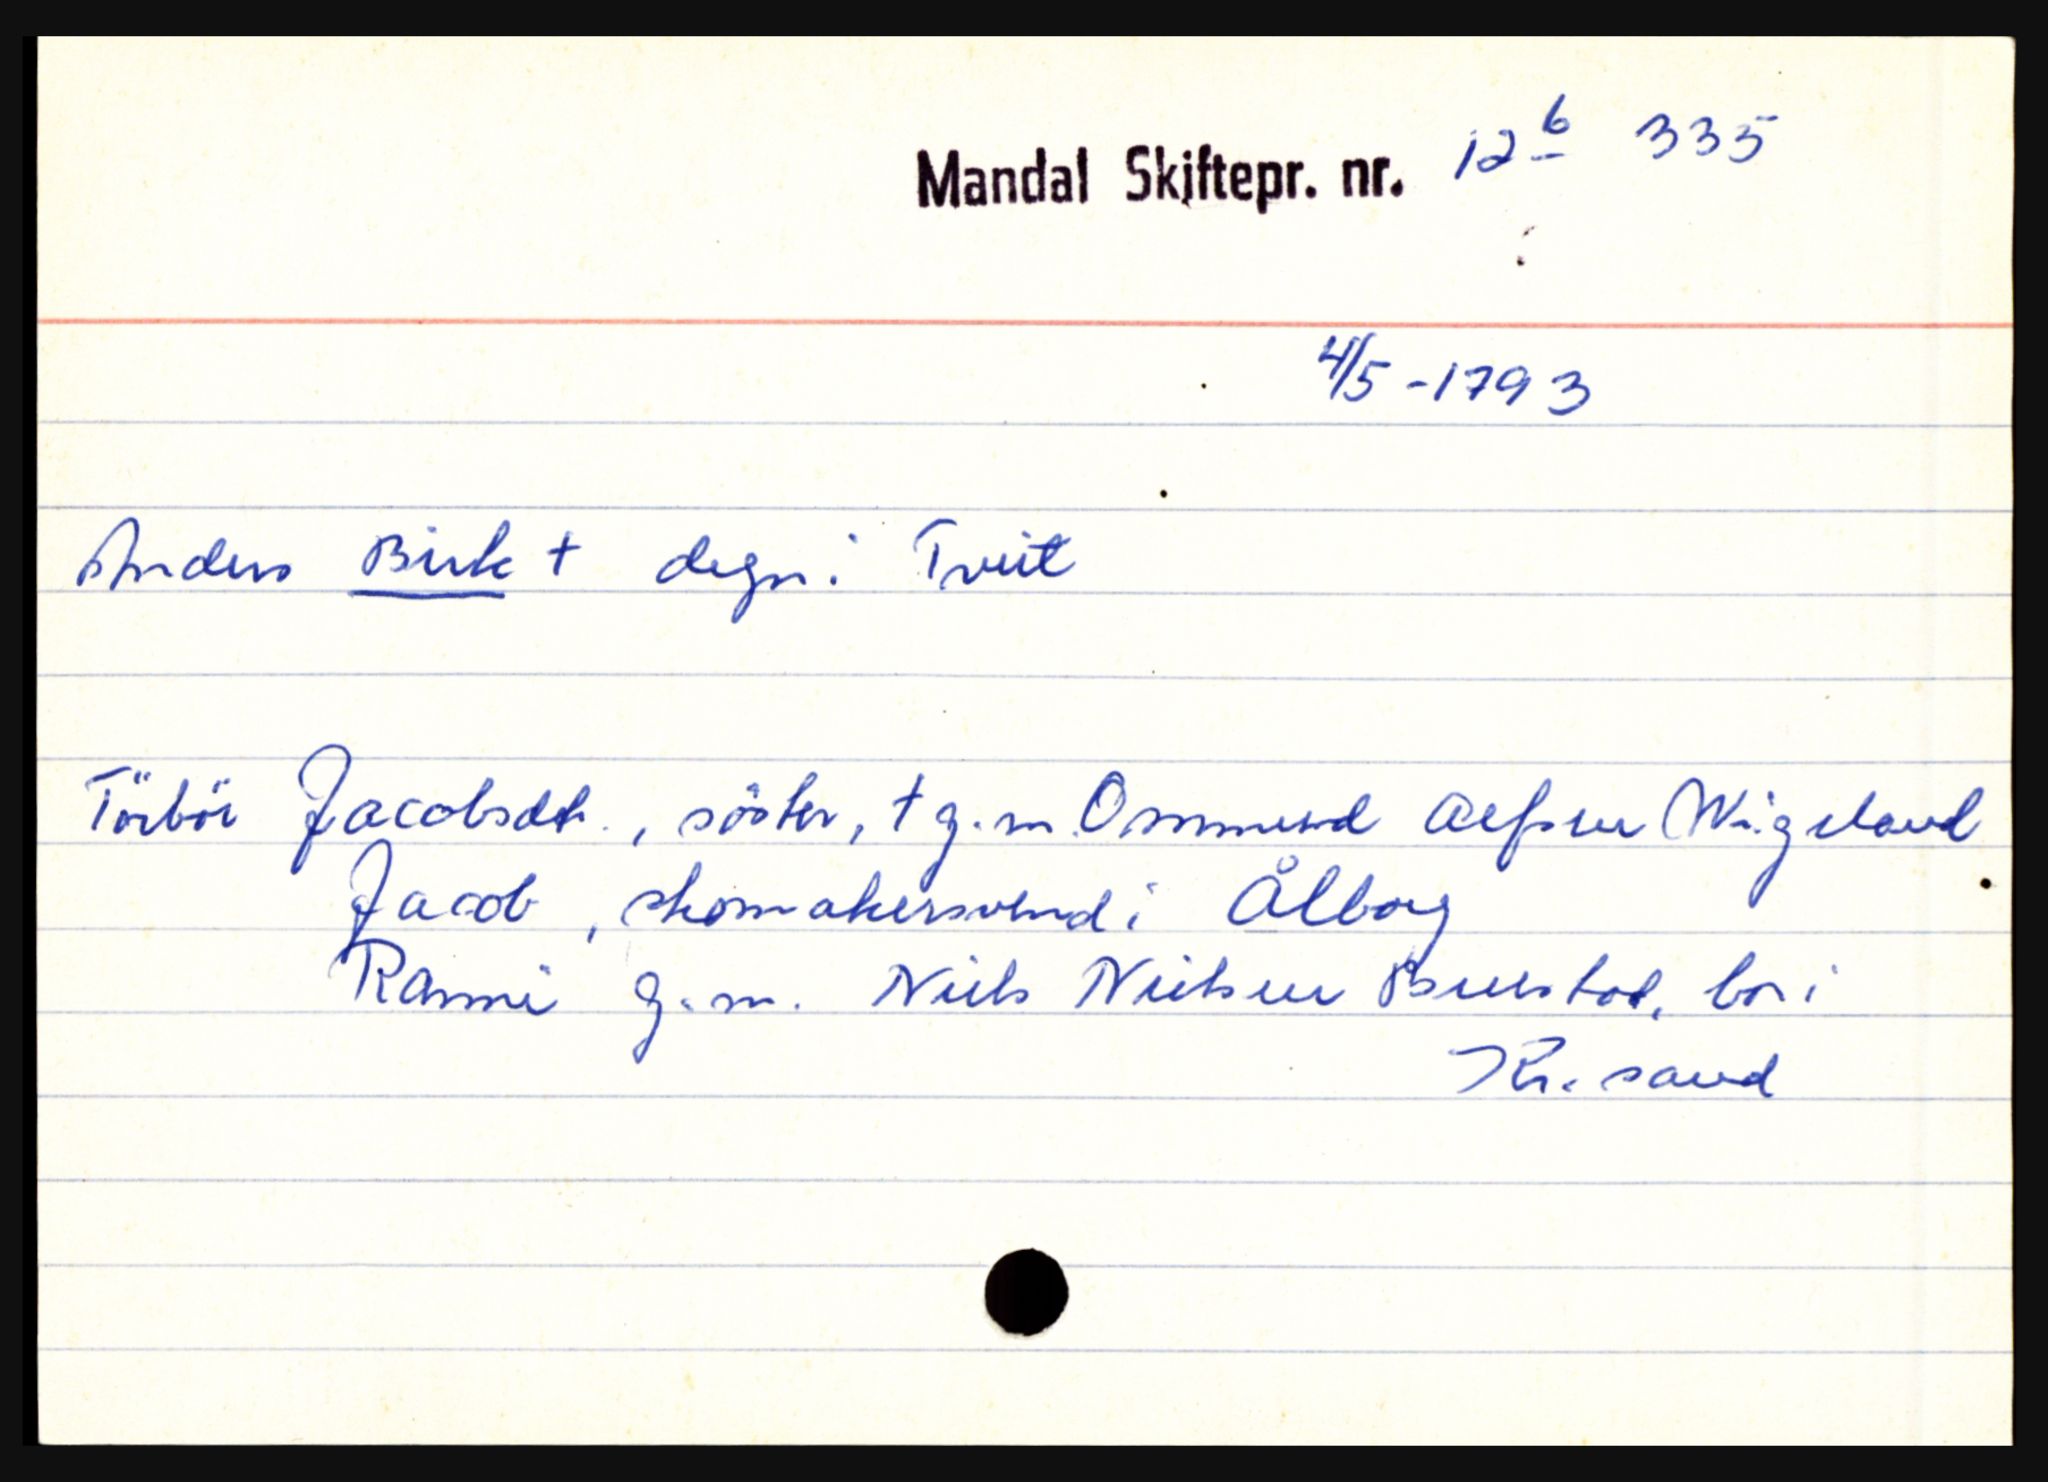 Mandal Skiftepr. nr. 12b 335
4/5 -1793
Anders Birk † degn i Tveit
Törbör Jacobsdt., söster, † g.m. Ommund Alfsen Wigeland
Jacob, skomakersvend i Ålborg
Rammi g.m. Niels Nielsen bor i
Kr.sand